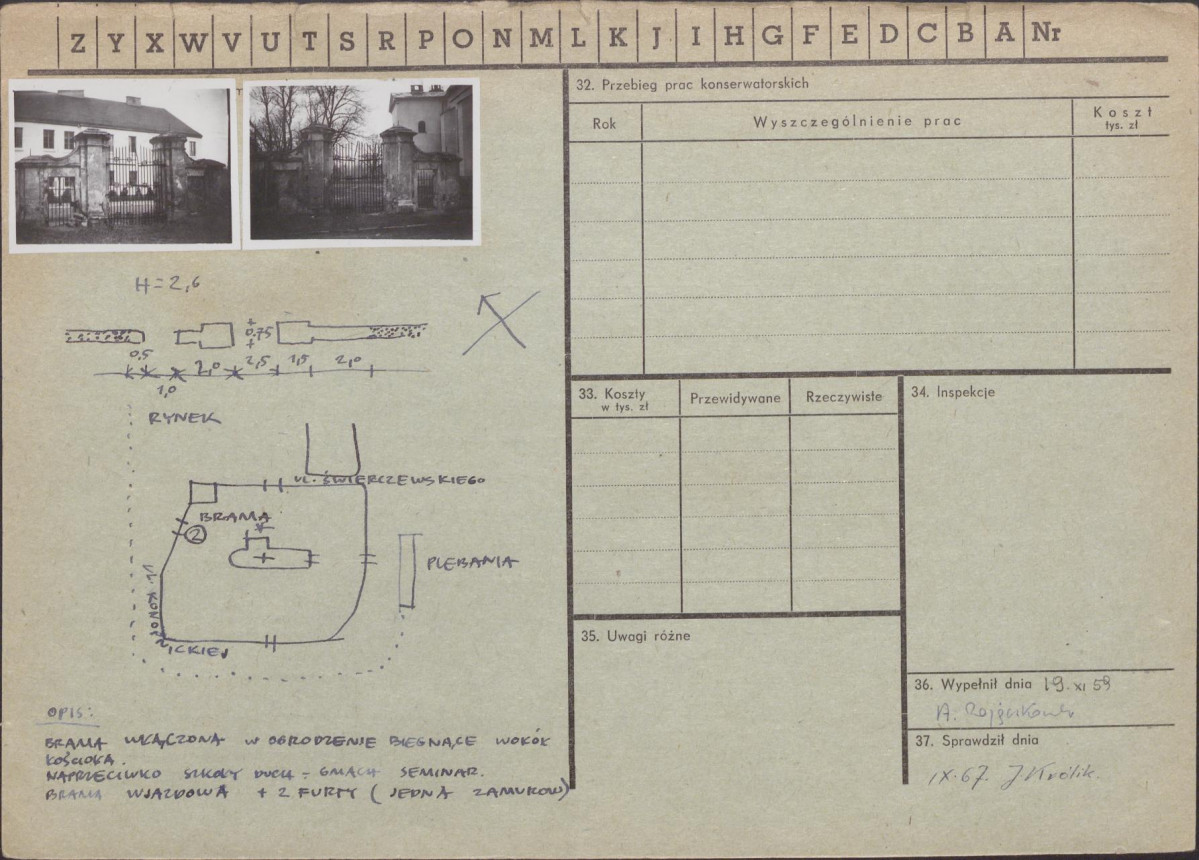 Z Y X W V U T S R P O N M L K J I H G F E D C B A Nr
H = 2,6
0,75
0,5 2,0 2,5 1,5 2,0
1,0
RYNEK
UL. ŚWIERCZEWSKIEGO
BRAMA
2
PLEBANIA
UL KONOPNICKIEJ
OPIS:
BRAMA WŁĄCZONA W OGRODZENIE BIEGNĄCE WOKÓŁ
KOŚCIOŁA.
NAPRZECIWKO SZKOŁY DUCH - GMACH SEMINAR.
BRAMA WJAZDOWA + 2 FURTY ( JEDNA ZAMUROW)
32. Przebieg prac konserwatorskich
Rok Wyszczególnienie prac Koszt
tys. zł
33. Koszty
w tys. zł
Przewidywane Rzeczywiste
34. Inspekcje
35. Uwagi różne
36. Wypełnił dnia 19. XI 59
A.
37. Sprawdził dnia
IX.67. J Królik.